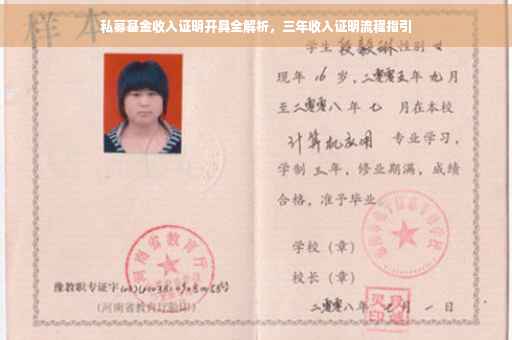 私募基金收入证明开具全解析，三年收入证明流程指引
样本
学生 段毅琳 性别 女
现年 16 岁，二零零五年九月
至二零零八年七 月在本校
计算机应用 专业学习，
学制 三年，修业期满，成绩
合格，准予毕业
学校（章）
校长（章）
二零零八年七月一日
河南省教育厅
豫教职专证字
（河南省教育厅验印）